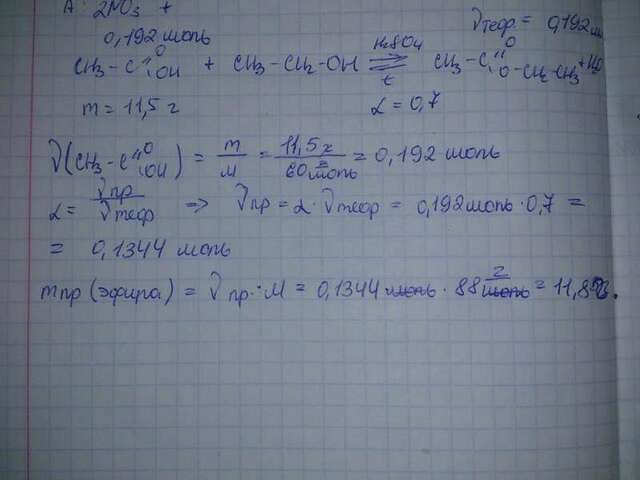 A: 2MO₃ +
0,192 моль
νтеор. = 0,192 м
CH₃-C(=O)OH + CH₃-CH₂-OH ⇌ (H₂SO₄, t) CH₃-C(=O)O-CH₂-CH₃ + H₂O
m = 11,5 г α = 0,7
ν(CH₃-C(=O)OH) = m/M = 11,5 г / 60 г/моль = 0,192 моль
α = νпр/νтеор => νпр = α · νтеор = 0,192 моль · 0,7 =
= 0,1344 моль
mпр (эфира) = νпр · M = 0,1344 моль · 88 г/моль = 11,8 г.